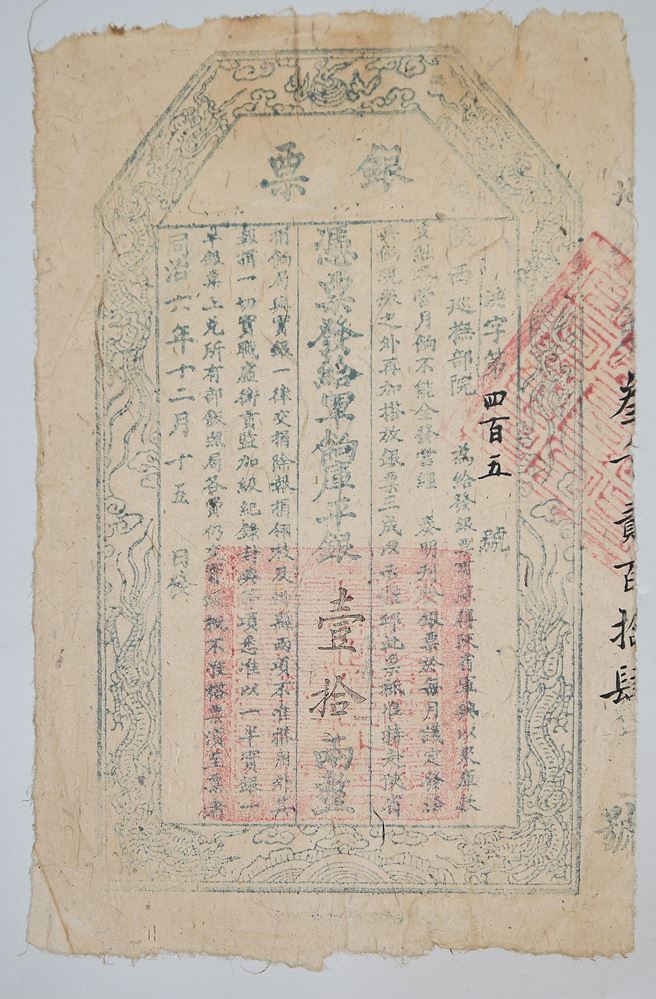 銀票
洪字第四百五號
陝西巡撫部院 為給發銀票事照得陝省軍興以來庫款
支絀各營月餉不能全發旨經 奏明刊發銀票於每月議定發給
餉現數之外再加搭放銀票二成
憑票發給軍餉庫平銀壹拾兩整
捐餉局與實銀一律交捐除報捐翎枝及 兩項不准搭用外其
報捐一切實職虛銜貢監加級紀錄封典等項悉准以一半實銀一
半銀票上兌所有部飯照局各費仍交實銀概不准搭票須至票者
同治六年十二月十五日發
叁千貳百拾肆號